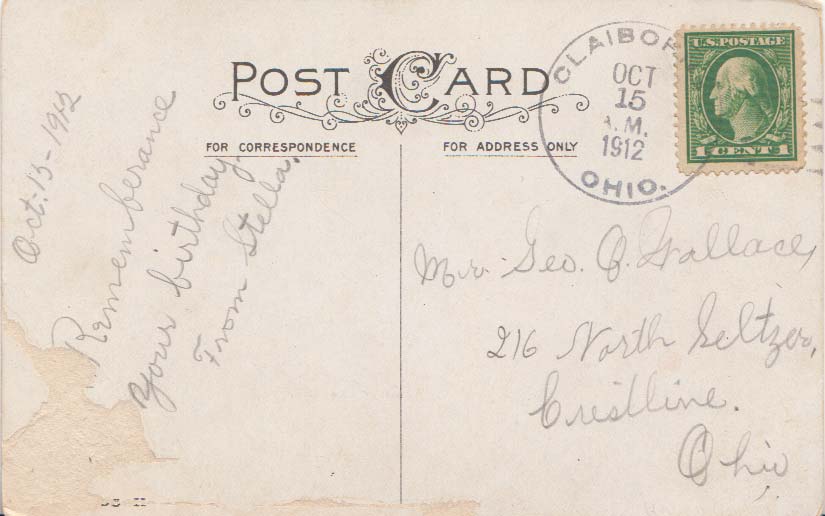 POST CARD
FOR CORRESPONDENCE
FOR ADDRESS ONLY
CLAIBOR
OCT
15
A.M.
1912
OHIO.
U.S. POSTAGE
1 CENT 1
Oct. 15 - 1912
Rememberance
Your birthday.
From Stella.
Mr. Geo. Q. Wallace,
216 North Seltzer,
Crestline.
Ohio